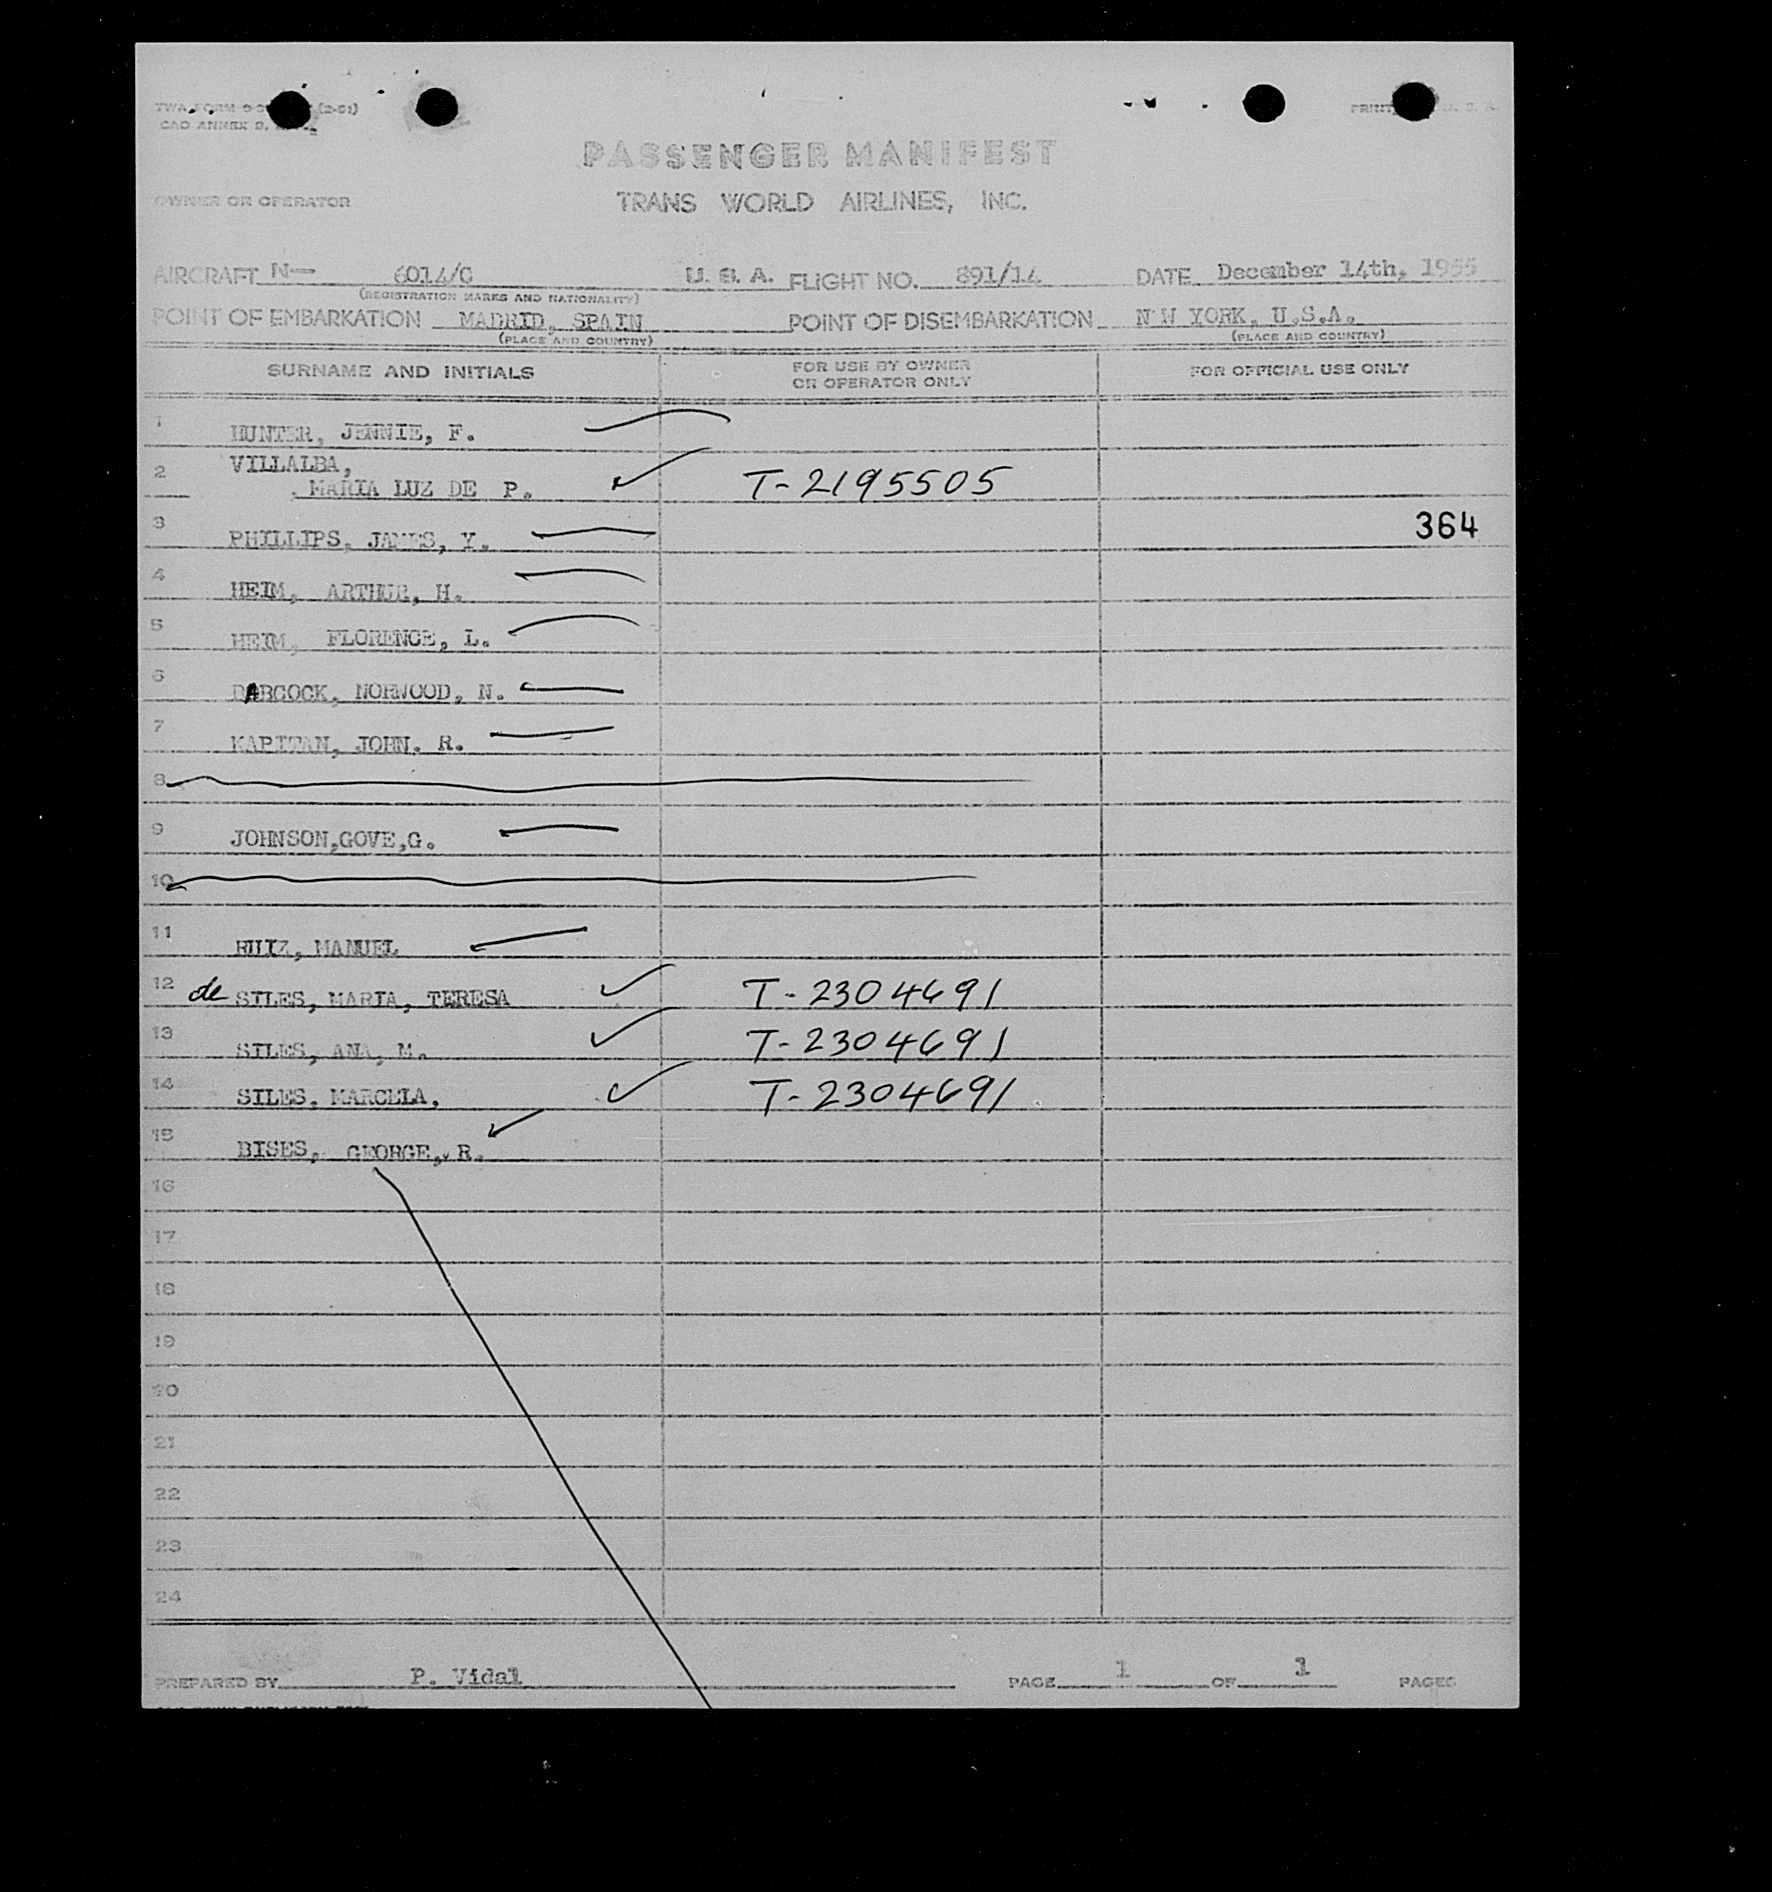 TWA FORM (2-51)
PRINT U. S. A.
CAO ANNEX 9,
PASSENGER MANIFEST
OWNER OR OPERATOR
TRANS WORLD AIRLINES, INC.
AIRCRAFT N— 6014/C U. S. A. FLIGHT NO. 891/14 DATE December 14th, 1955
(REGISTRATION MARKS AND NATIONALITY)
POINT OF EMBARKATION MADRID, SPAIN POINT OF DISEMBARKATION N W YORK, U.S.A.
(PLACE AND COUNTRY) (PLACE AND COUNTRY)
SURNAME AND INITIALS FOR USE BY OWNER OR OPERATOR ONLY FOR OFFICIAL USE ONLY
1 HUNTER, JENNIE, F.
2 VILLALBA,
MARIA LUZ DE P. T-2195505
3 PHILLIPS, JAMES, Y. 364
4 HEIM, ARTHUR, H.
5 HEIM, FLORENCE, L.
6 BABCOCK, NORWOOD, N.
7 KAPITAN, JOHN. R.
8
9 JOHNSON,GOVE,G.
10
11 RUIZ, MANUEL
12 de SILES, MARIA, TERESA T-2304691
13 SILES, ANA, M. T-2304691
14 SILES, MARCELA, T-2304691
15 BISES, GEORGE, R.
16
17
18
19
20
21
22
23
24
PREPARED BY P. Vidal PAGE 1 OF 1 PAGES